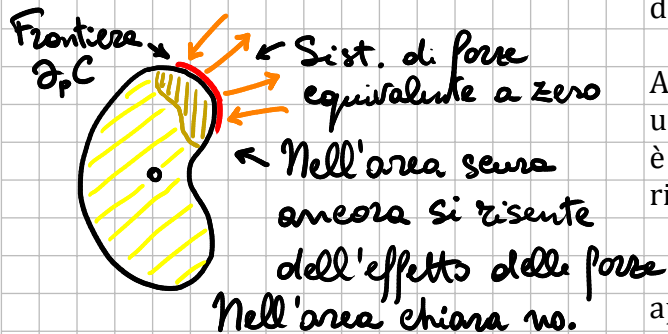 Frontiera
∂ₚC
Sist. di forze
equivalente a zero
Nell'area scura
ancora si risente
dell'effetto delle forze
Nell'area chiara no.
d
A
u
è
ri